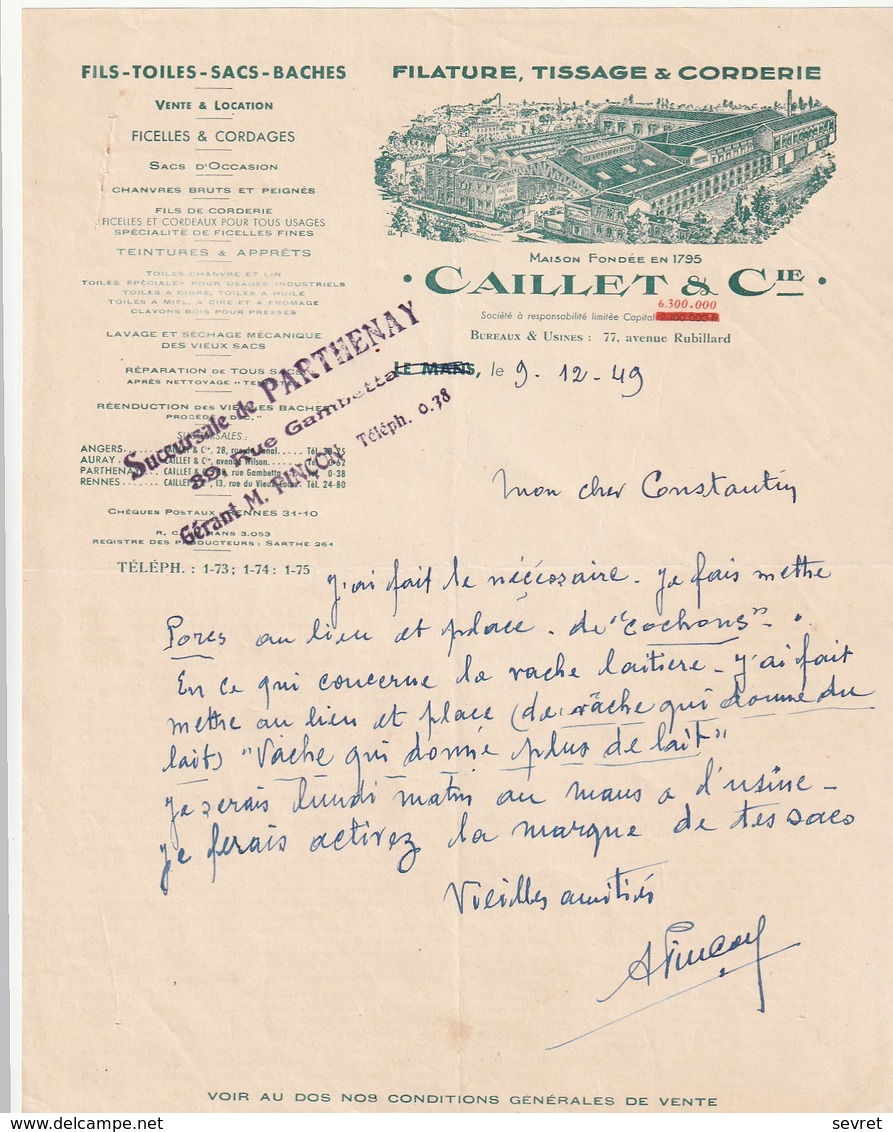 FILS-TOILES-SACS-BACHES
VENTE & LOCATION
FICELLES & CORDAGES
SACS D'OCCASION
CHANVRES BRUTS ET PEIGNÉS
FILS DE CORDERIE
FICELLES ET CORDEAUX POUR TOUS USAGES
SPÉCIALITÉ DE FICELLES FINES
TEINTURES & APPRÊTS
TOILES CHANVRE ET LIN
TOILES SPÉCIALES POUR USAGES INDUSTRIELS
TOILES A CIDRE, TOILES A HUILE
TOILES A MIEL, A CIRE ET A FROMAGE
CLAYONS BOIS POUR PRESSES
LAVAGE ET SÉCHAGE MÉCANIQUE
DES VIEUX SACS
RÉPARATION DE TOUS SACS
APRÈS NETTOYAGE
RÉENDUCTION DES VIEILLES BACHES
PROCÉDÉ
SUCCURSALES :
ANGERS & Cie, 28, rue Tél.
AURAY CAILLET & Cie, avenue Wilson. Tél.
PARTHENAY CAILLET & rue Gambetta 0-38
RENNES CAILLET 13, rue du Vieux Tél. 24-80
CHÈQUES POSTAUX RENNES 31-10
R. C. MANS 3.053
REGISTRE DES PRODUCTEURS : SARTHE 261
TÉLÉPH. : 1-73; 1-74: 1-75
Succursale de PARTHENAY
89, Rue Gambetta
Gérant M. PINÇON Téléph. 0.38
FILATURE, TISSAGE & CORDERIE
MAISON FONDÉE EN 1795
• CAILLET & CIE •
6.300.000
Société à responsabilité limitée Capital
BUREAUX & USINES : 77, avenue Rubillard
LE MANS, le 9-12-49
Mon cher Constantin
J'ai fait le nécessaire. Je fais mettre
Porcs au lieu et place. de "cochons".
En ce qui concerne la vache laitiere - J'ai fait
mettre au lieu et place (de vâche qui donne du
lait) "Vache qui donne plus de lait"
Je serais lundi matin au mans a l'usine -
Je ferais activez la marque de tes sacs
Vieilles amitiés
A Pinçon
VOIR AU DOS NOS CONDITIONS GÉNÉRALES DE VENTE
delcampe.net
sevret